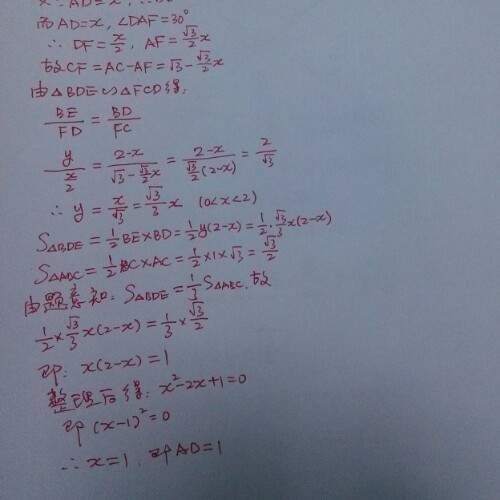 AD=x,
而AD=x, ∠DAF=30°
∴ DF=x/2, AF=√3/2 x
故CF=AC-AF=√3-√3/2 x
由△BDE∽△FCD得:
BE/FD = BD/FC
y/(x/2) = (2-x)/(√3-√3/2 x) = (2-x)/(√3/2 (2-x)) = 2/√3
∴ y = x/√3 = √3/3 x (0<x<2)
S△BDE = 1/2 BE×BD = 1/2 y(2-x) = 1/2 · √3/3 x(2-x)
S△ABC = 1/2 BC×AC = 1/2 ×1×√3 = √3/2
由题意知: S△BDE = 1/3 S△ABC, 故
1/2 × √3/3 x(2-x) = 1/3 × √3/2
即: x(2-x)=1
整理后得: x²-2x+1=0
即 (x-1)²=0
∴ x=1, 即AD=1